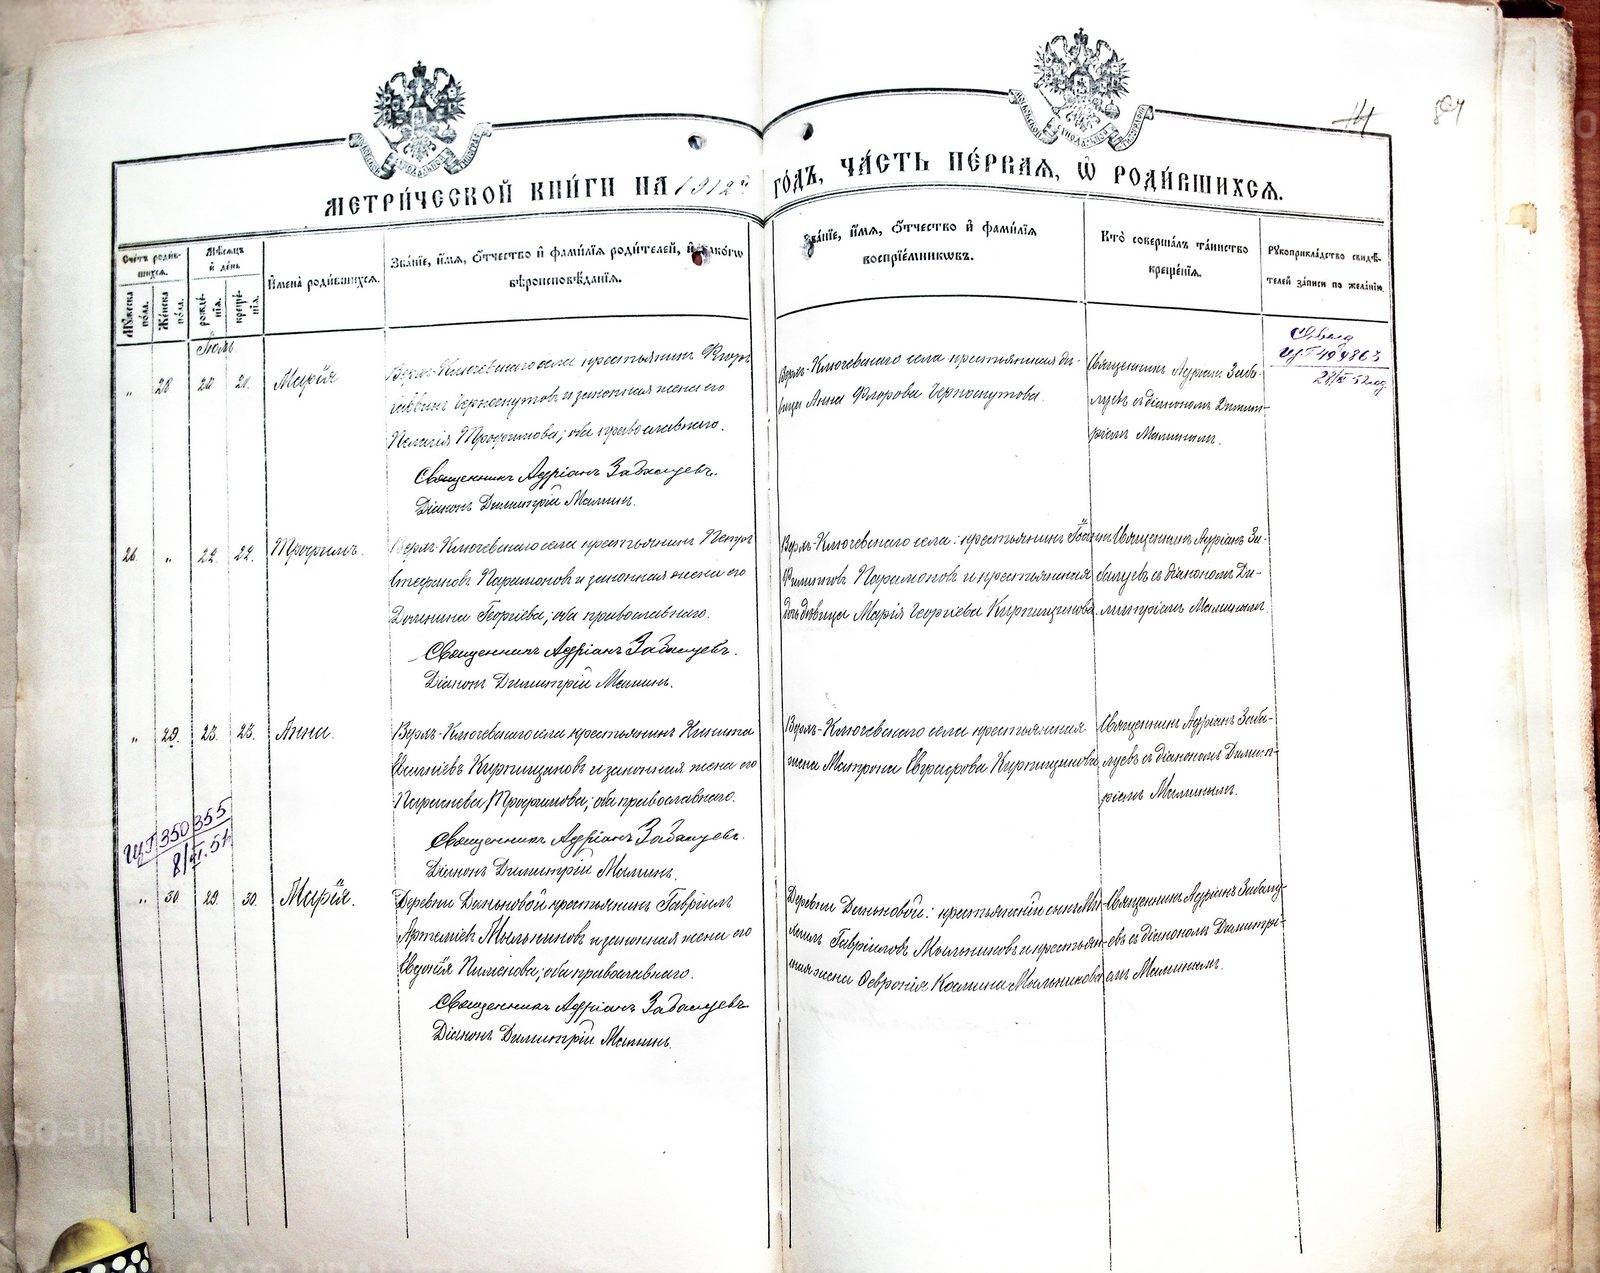 14
МЕТРИ́ЧЕСКОЙ КНИ́ГИ НА 1912й ГО́ДЪ, ЧА́СТЬ ПЕ́РВАЯ, Ѡ РОДИ́ВШИХСЯ.
Сче́тъ роди́вшихся.
Мꙋ́жеска по́ла.
Же́нска по́ла.
Мѣ́сяцъ и҆ де́нь
рожде́нїя.
креще́нїя.
И҆мена̀ роди́вшихся.
Зва́нїе, и҆́мя, ѻ҆́тчество и҆ фами́лїя роди́телей, и҆ како́гѡ
вѣроисповѣ́данїя.
Зва́нїе, и҆́мя, ѻ҆́тчество и҆ фами́лїя
воспрїе́мникѡвъ.
Кто̀ соверша́лъ та́инство
креще́нїя.
Рꙋкоприкла́дство свидѣ́-
телей за́писи по жела́нїю.
Іюль.
" 28 20. Марія
Верхъ-Ключевскаго села крестьянинъ
Чернскутовъ и законная жена его
Пелагія Трофимова; оба православнаго.
Священникъ Адріанъ Забалуевъ.
Діаконъ Димитрій Мамин.
Верхъ-Ключевскаго села крестьянская дѣ-
вица Анна Флорова Черноскутова.
Священникъ Адріанъ Заба-
луевъ съ діакономъ Димит-
ріемъ Маминымъ.
26. " 22. 22. Трофимъ.
Верхъ-Ключевскаго села крестьянинъ Петръ
Стефановъ Парамоновъ и законная жена его
Домнина Георгіева; оба православнаго.
Священникъ Адріанъ Забалуевъ.
Діаконъ Димитрій Маминъ.
Верхъ-Ключевскаго села: крестьянинъ
Филипповъ Парамоновъ и крестьянская
дѣвица Марія Георгіева Кирпищикова
Священникъ Адріанъ За-
балуевъ съ діакономъ Ди-
митріемъ Маминымъ
" 29. 23. 23. Анна.
Верхъ-Ключевскаго села крестьянинъ Никита
Кирпищиковъ и законная жена его
Параскева Трофимова; оба православнаго.
Священникъ Адріанъ Забалуевъ.
Діаконъ Димитрій Маминъ.
Верхъ-Ключевскаго села крестьянская
жена Матрона Евграфова Кирпищикова
Священникъ Адріанъ Заба-
луевъ съ діакономъ Димит-
ріемъ Маминымъ.
350355
" 30. 29. 30. Марія.
Деревни крестьянинъ Гавріилъ
Артеміевъ Мыльниковъ и законная жена его
Евдокія Пименова; оба православнаго.
Священникъ Адріанъ Забалуевъ
Діаконъ Димитрій Маминъ.
Деревни крестьянскій сынъ Ми-
хаилъ Гавріиловъ Мыльниковъ и крестьян-
ская жена Февронія Мыльникова
Священникъ Адріанъ Забалу-
евъ съ діакономъ Димитрі-
емъ Маминымъ.